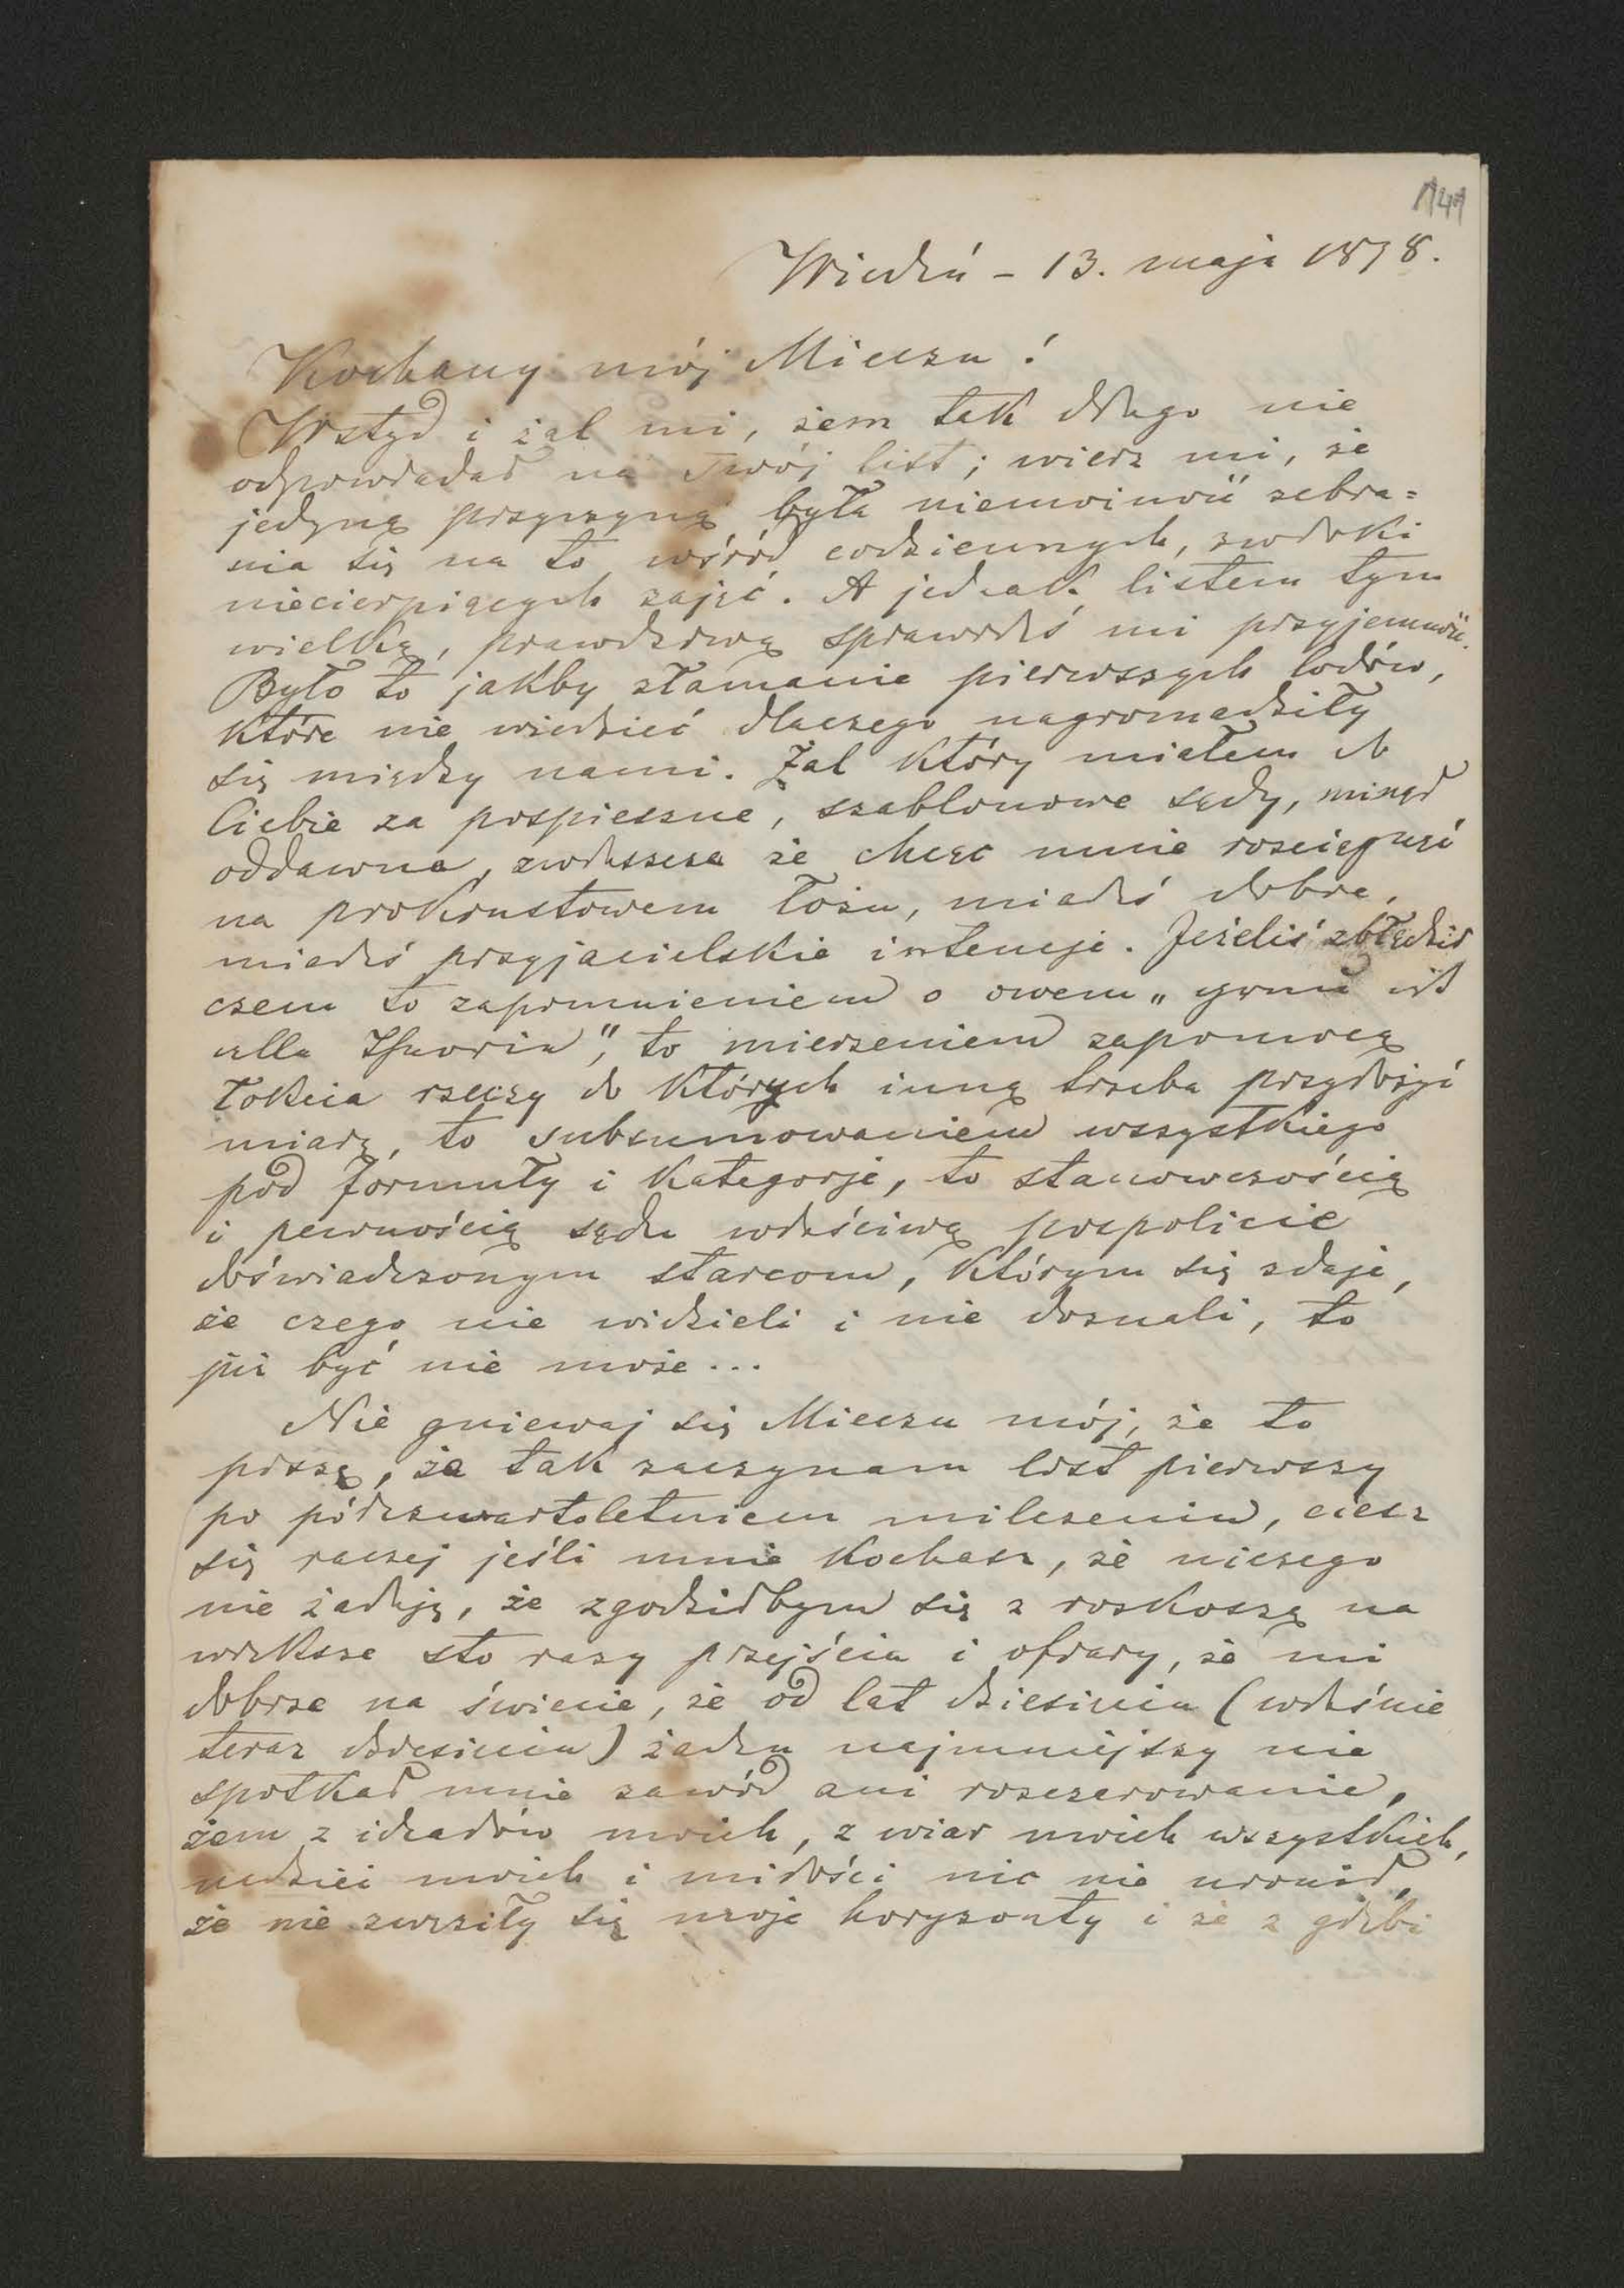 141
Wiedeń – 13. maja 1878.
Kochany mój Mieciu!
Wstyd i żal mi, żem tak długo nie
odpowiadał na Twój list; wierz mi, że
jedyną przyczyną była niemożność zebra=
nia się na to wśród codziennych, zwłoki
niecierpiących zajęć. A jednak listem tym
wielką, prawdziwą sprawiłeś mi przyjemność.
Było to jakby złamanie pierwszych lodów,
które nie wiedzieć dlaczego nagromadziły
się między nami. Żal który miałem do
Ciebie za pospieszne, szablonowe sądy, minął
oddawna, zwłaszcza że chcąc mnie rosciągnąć
na prokrustowem łożu, miałeś dobre,
miałeś przyjacielskie intencje. Jeżeliś zbłądził
czem to zapomnieniem o owem „
to mierzeniem zapomocą
łokcia rzeczy do których inną trzeba przyłożyć
miarę, to subsumowaniem wszystkiego
pod formuły i kategorje, to stanowczością
i pewnością sądu właściwą pospolicie
doświadczonym starcom, którym się zdaje,
że czego nie widzieli i nie doznali, to
już być nie może...
Nie gniewaj się Mieciu mój, że to
piszę, że tak zaczynam list pierwszy
po półczwartoletniem milczeniu, ciesz
się raczej jeśli mnie kochasz, że niczego
nie żałuję, że zgodziłbym się z roskoszą na
większe sto razy przejścia i ofiary, że mi
dobrze na świecie, że od lat dziesięciu (właśnie
teraz dziesięciu) żaden najmniejszy nie
spotkał mnie zawód ani roszczarowanie,
żem z ideałów moich, z wiar moich wszystkich,
nadziei moich i miłości nic nie uronił,
że nie zwęziły się moje horyzonty i że z głębi